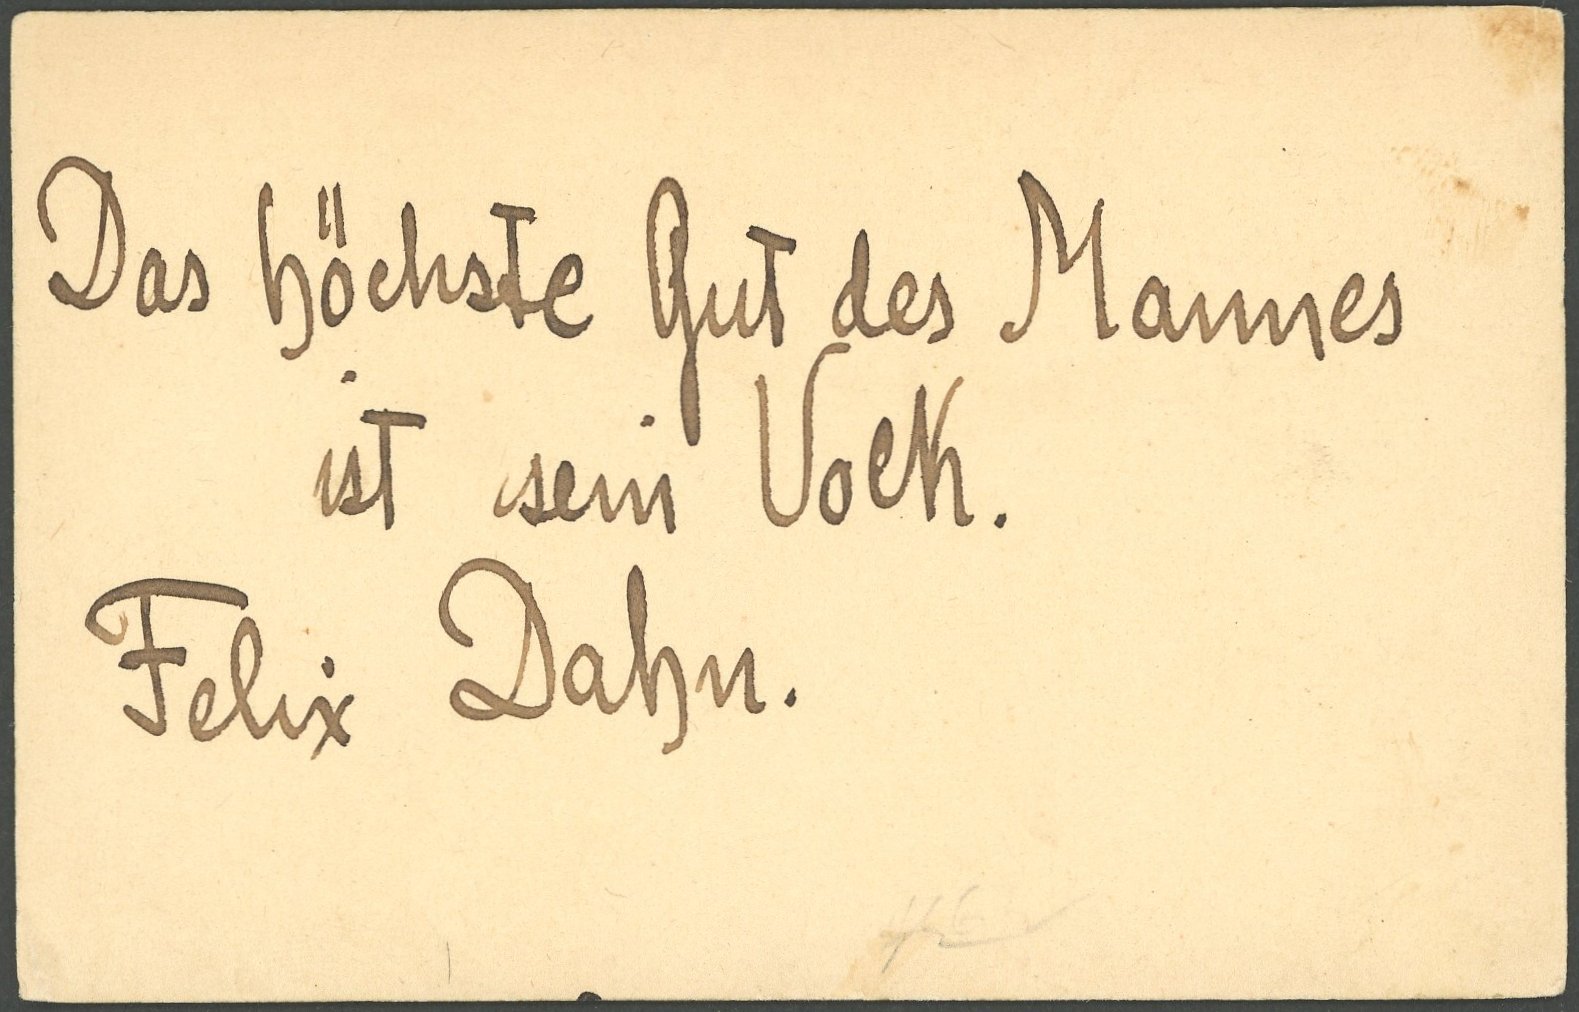 Das höchste Gut des Mannes
ist sein Volk.
Felix Dahn.